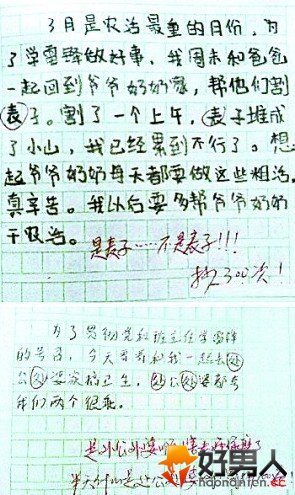 3月是农活最重的月份，为
了学雷锋做好事，我周末和爸爸
一起回到爷爷奶奶家，帮他们割
表子。割了一个上午，表子堆成
了小山，我已经累到不行了。想
起爷爷奶奶每天都要做这些粗活，
真辛苦。我以后要多帮爷爷奶奶
干农活。
是麦子……不是表子!!!
抄300次!
为了贯彻党和班主任学雷锋
的号召，今天爸爸和我一起去处
公处婆家搞卫生，处公处婆都夸
我们两个很乖。
是外公外婆
好男人